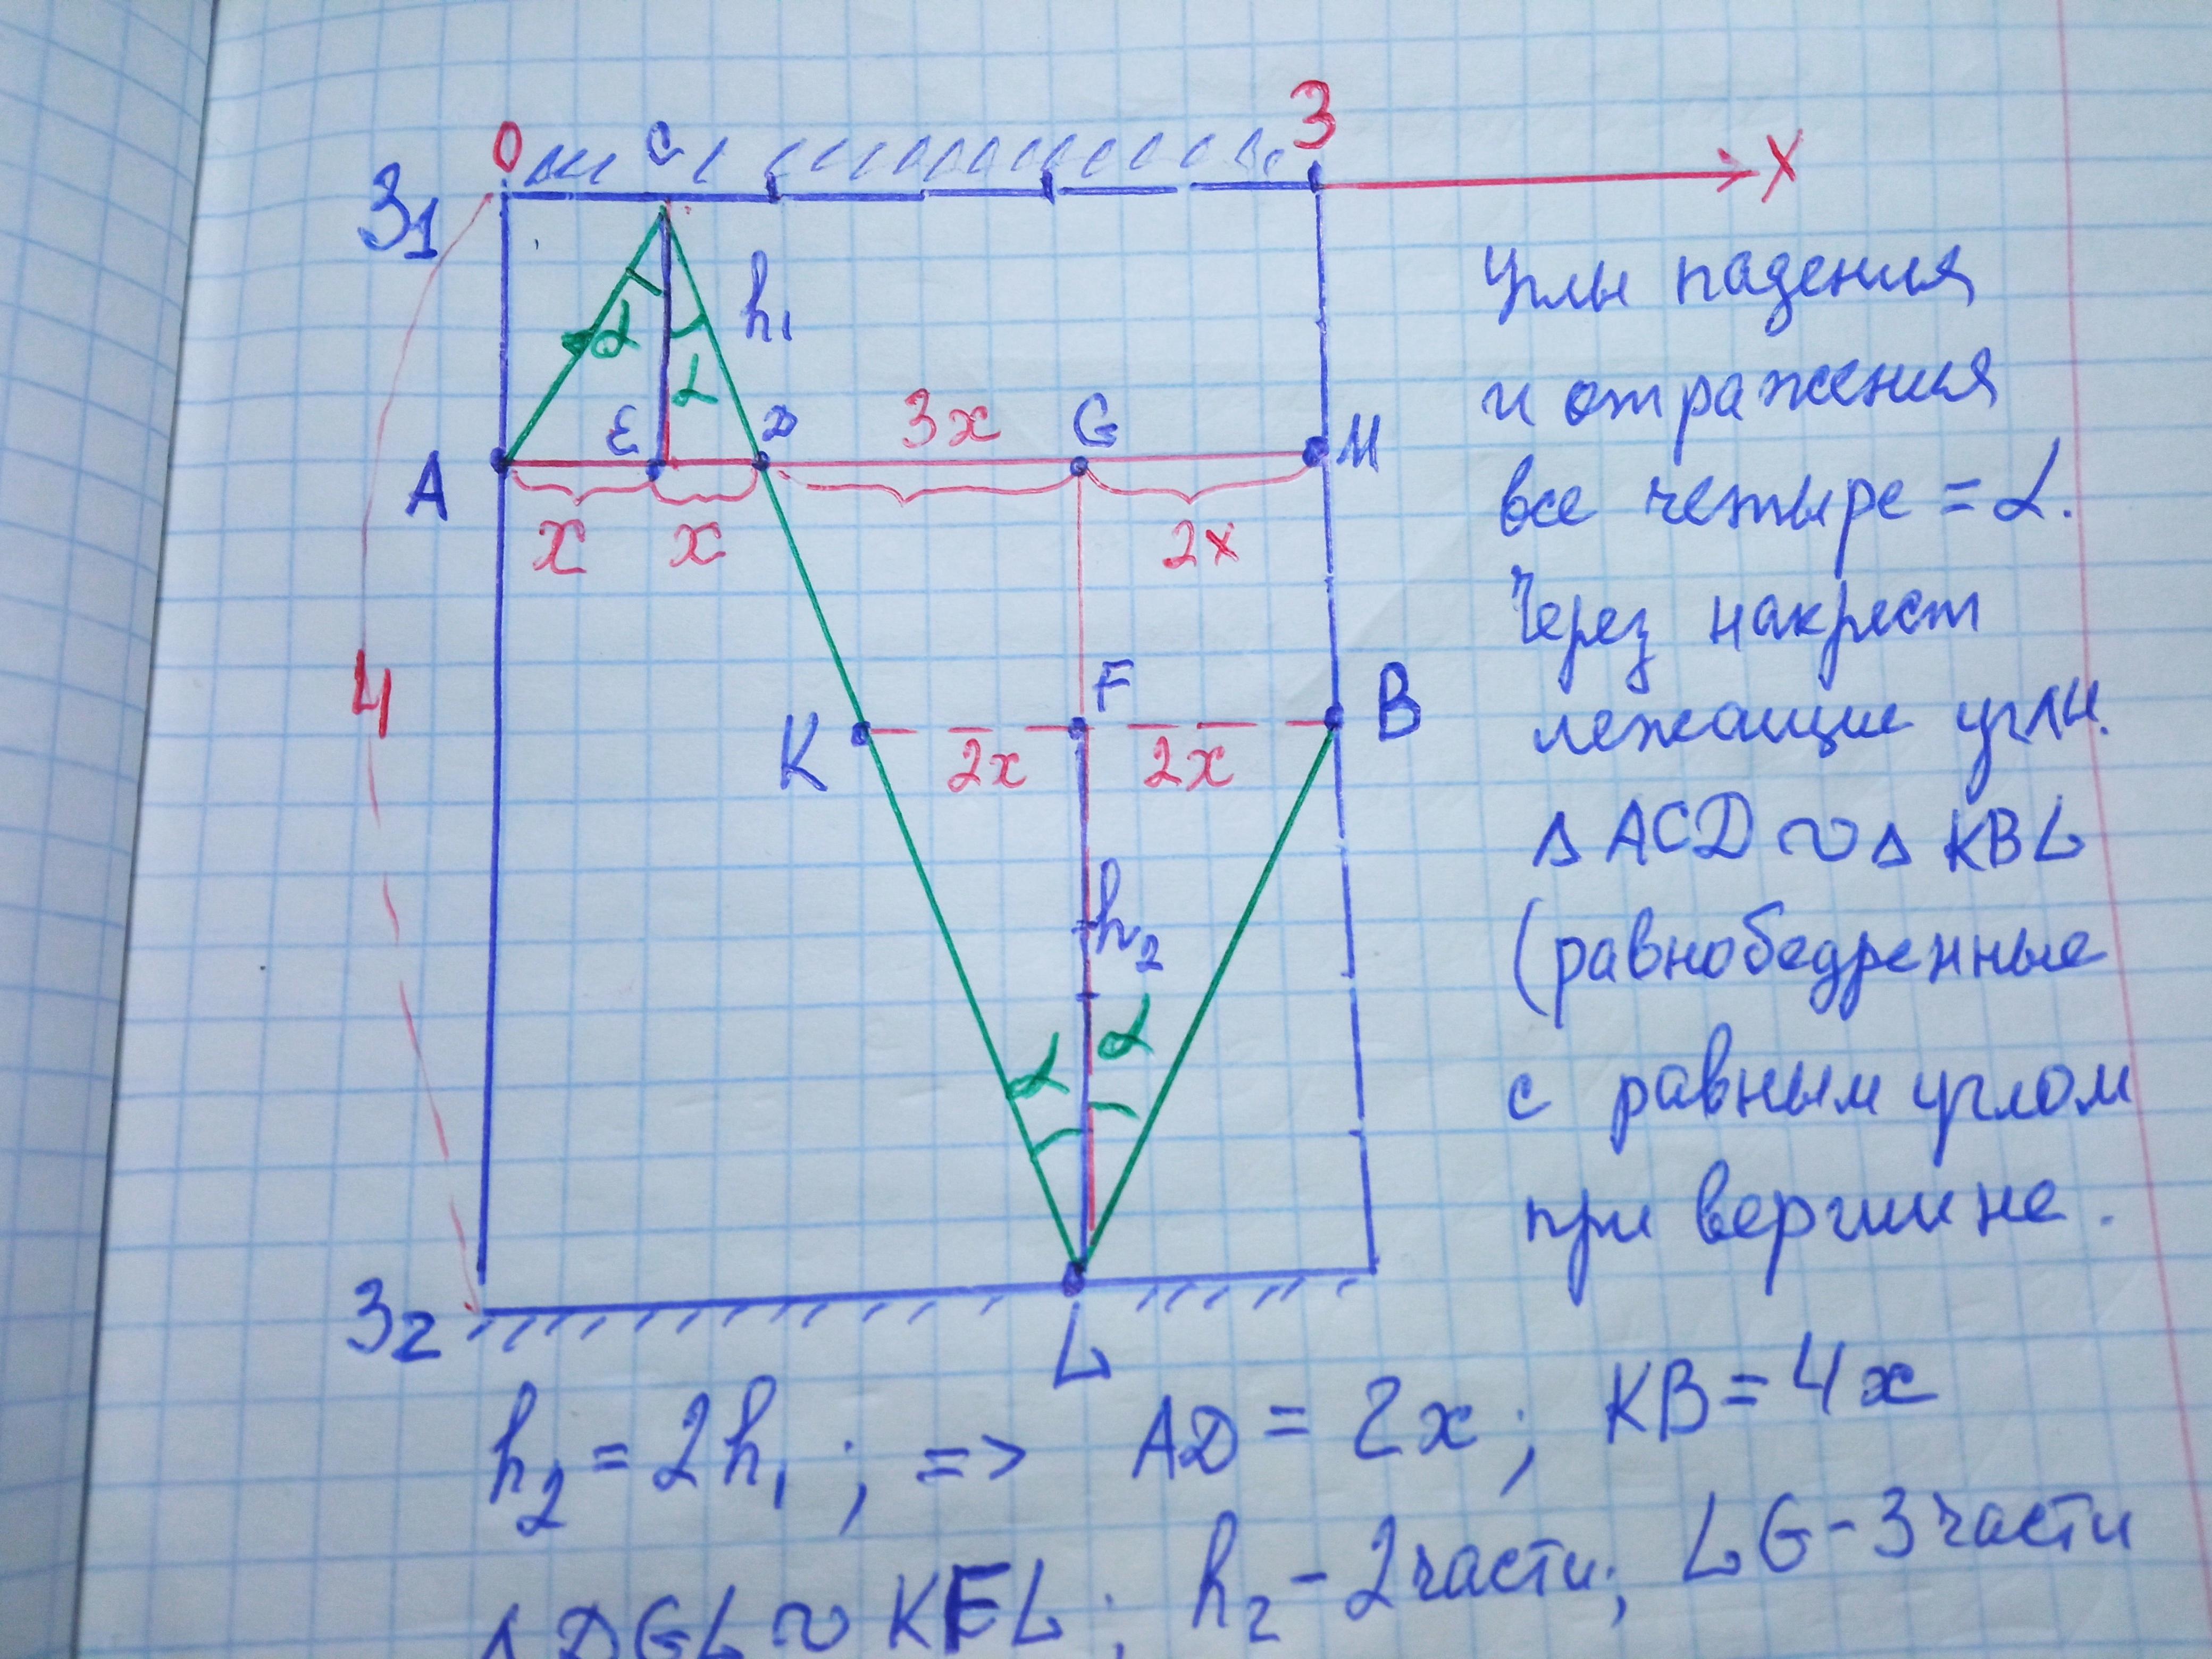 0 C 3
З1 X
α h1
α
A E D 3x G M
x x 2x
4 K F B
2x 2x
h2
α α
З2 L
Углы падения
и отражения
все четыре = α.
Через накрест
лежащие углы.
Δ ACD ∾ Δ KBL
(равнобедренные
с равным углом
при вершине.
h2 = 2h1 ; => AD = 2x ; KB = 4x
Δ DGL ∾ KFL ; h2 - 2 части; LG - 3 части